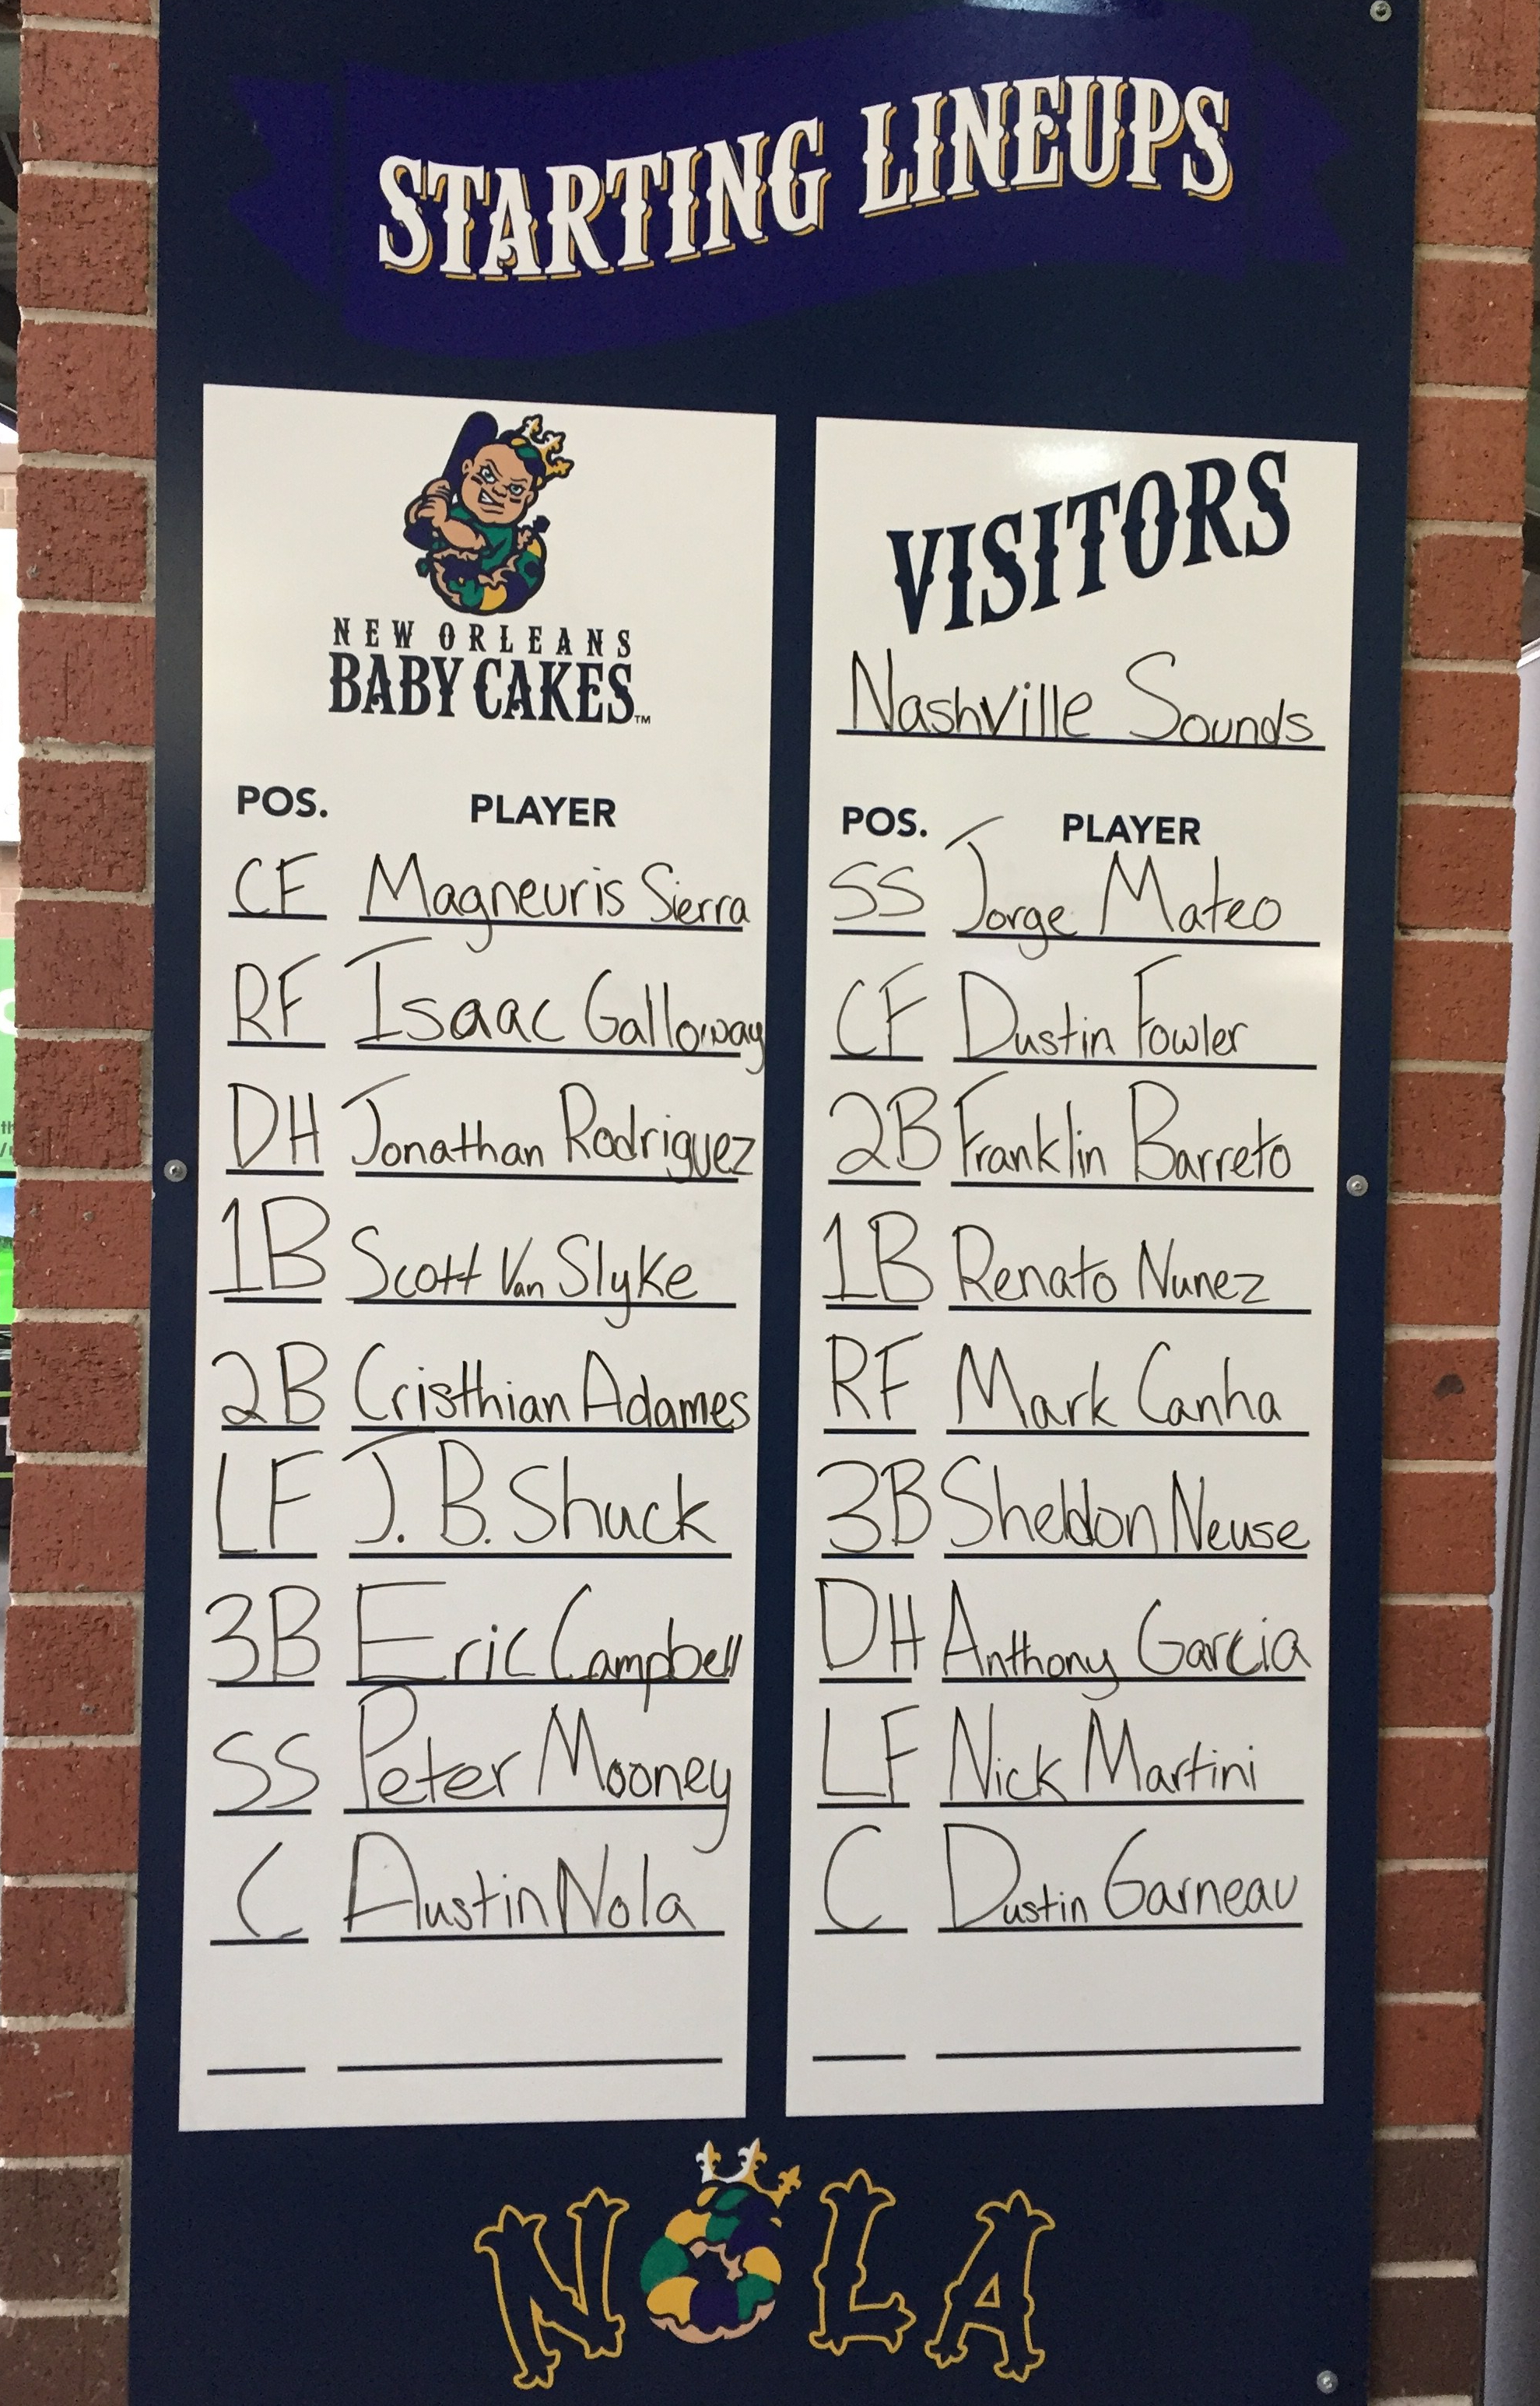 STARTING LINEUPS
NEW ORLEANS
BABY CAKES™
POS. PLAYER
CF Magneuris Sierra
RF Isaac Galloway
DH Jonathan Rodriguez
1B Scott Van Slyke
2B Cristhian Adames
LF J. B. Shuck
3B Eric Campbell
SS Peter Mooney
C Austin Nola
VISITORS
Nashville Sounds
POS. PLAYER
SS Jorge Mateo
CF Dustin Fowler
2B Franklin Barreto
1B Renato Nunez
RF Mark Canha
3B Sheldon Neuse
DH Anthony Garcia
LF Nick Martini
C Dustin Garneau
NOLA